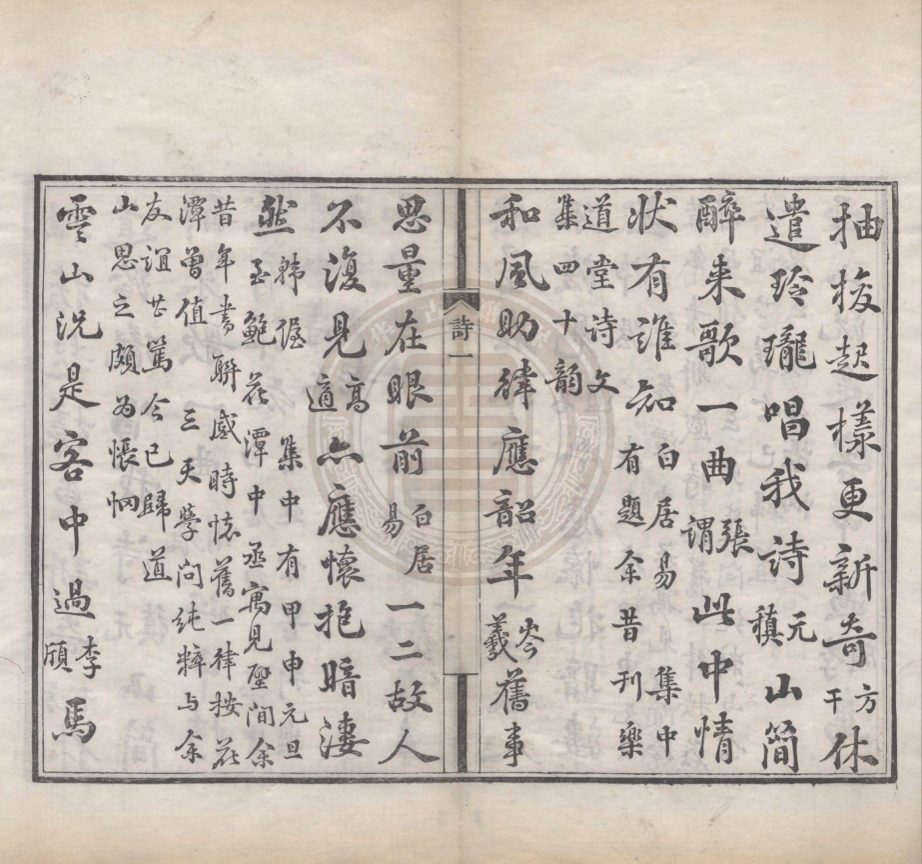 抽梭起樣更新奇方干休
遣玲瓏唱我詩元稹山簡
醉来歌一曲張謂此中情
狀有誰知白居易集中有題余昔刊樂
道堂詩文集四十韻
和風助律應韶年岑羲舊事
詩一
思量在眼前白居易一二故人
不復見高適亦應懷抱暗淒
然韓偓集中有甲申元旦至鮑花潭中丞寓見壁間余
昔年書聯感時懷舊一律按花潭曾值三天學問純粹与余
友誼甚篤今已歸道山思之頗为悵惘
雲山况是客中過李頎馬